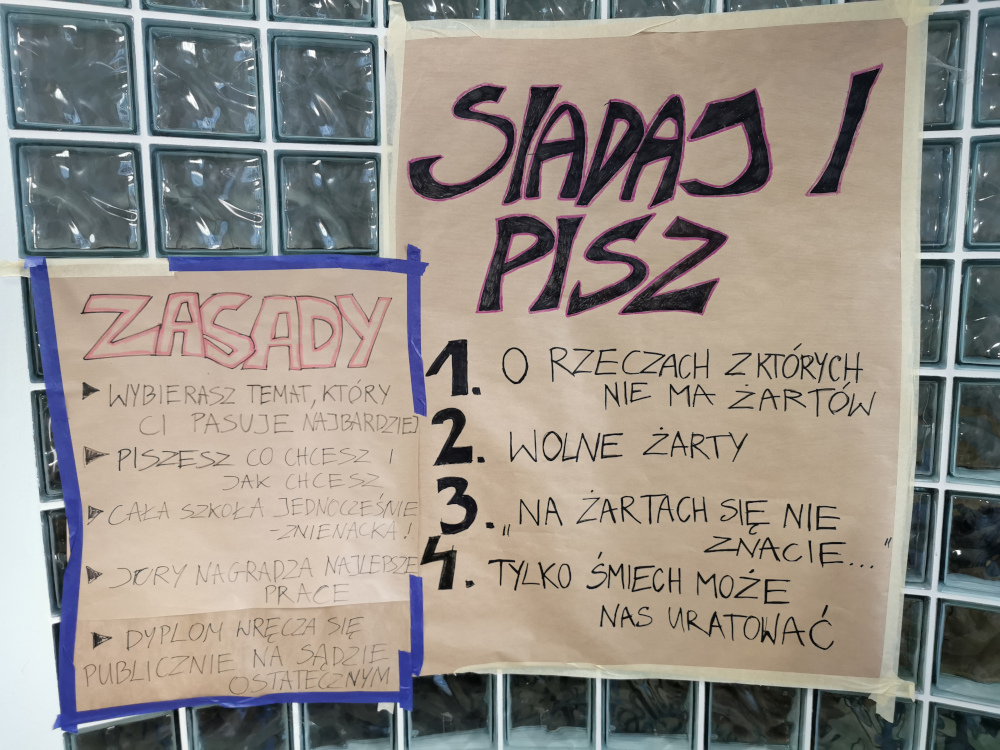 SIADAJ I
PISZ
1. O RZECZACH Z KTÓRYCH
NIE MA ŻARTÓW
2. WOLNE ŻARTY
3. „NA ŻARTACH SIĘ NIE
ZNACIE..."
4. TYLKO ŚMIECH MOŻE
NAS URATOWAĆ
ZASADY
▶ WYBIERASZ TEMAT, KTÓRY
CI PASUJE NAJBARDZIEJ
▶ PISZESZ CO CHCESZ I
JAK CHCESZ
▶ CAŁA SZKOŁA JEDNOCZEŚNIE
-ZNIENACKA!
▶ JURY NAGRADZA NAJLEPSZE
PRACE
▶ DYPLOM WRĘCZA SIĘ
PUBLICZNIE NA SĄDZIE
OSTATECZNYM